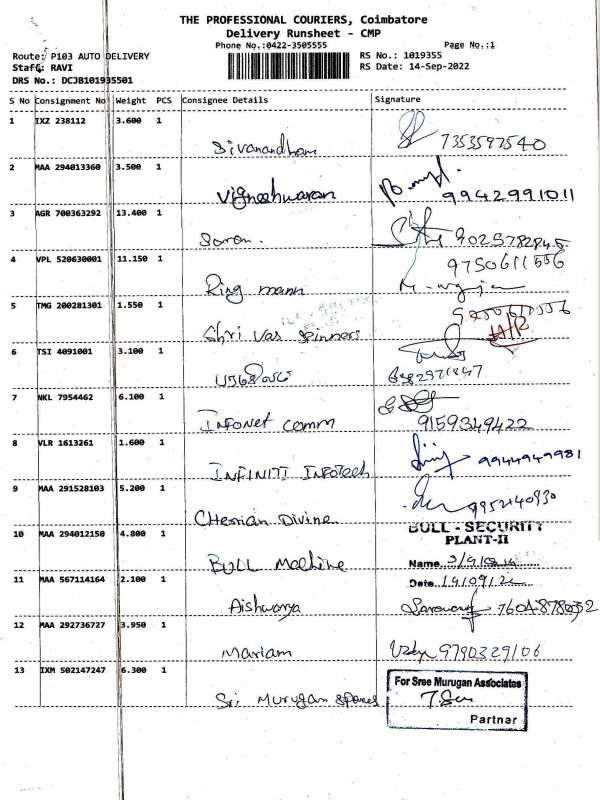 THE PROFESSIONAL COURIERS, Coimbatore
Delivery Runsheet - CMP
Phone No.:0422-3505555 Page No.:1
Route: P103 AUTO DELIVERY RS No.: 1019355
Staff: RAVI RS Date: 14-Sep-2022
DRS No.: DCJB101935501
S No Consignment No Weight PCS Consignee Details Signature
1 IXZ 238112 3.600 1
Sivanandham 7353597540
2 MAA 294013360 3.500 1
Vigneshwaran 9942991011
3 AGR 700363292 13.400 1
Saran. 9025782845
4 VPL 520630001 11.150 1 9750611556
Ring mann
5 TMG 200281301 1.550 1
Shri Vas Spinners
6 TSI 4091001 3.100 1
7 NKL 7954462 6.100 1
Infonet comm 9159349422
8 VLR 1613261 1.600 1
INFINITI INFOTECH 9944949981
9 MAA 291528103 5.200 1
Cherrian Divine 9952140930
10 MAA 294012150 4.800 1 BULL - SECURITY
PLANT-II
BULL Machine Name
11 MAA 567114164 2.100 1 Date
Aishwarya
12 MAA 292736727 3.950 1
Mariam 9790329106
13 IXM 502147247 6.300 1
For Sree Murugan Associates
Sri Murugan Spares
Partnar